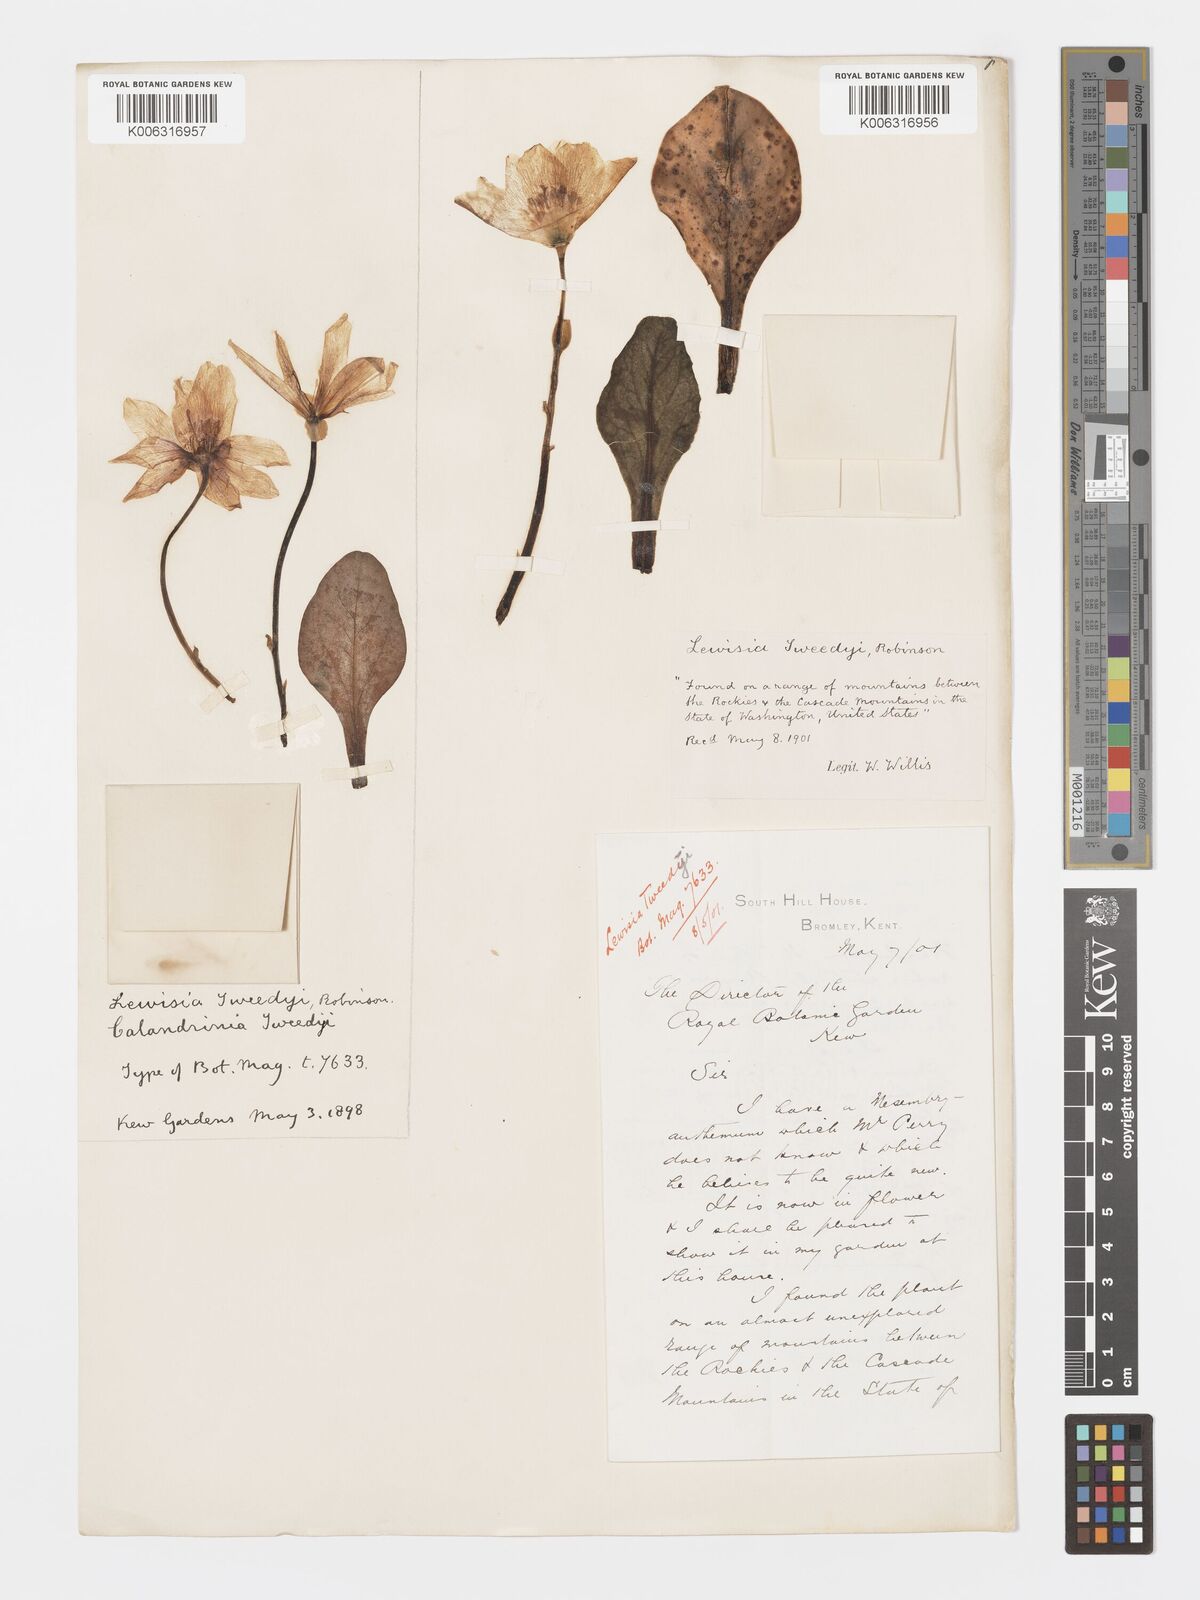 ROYAL BOTANIC GARDENS KEW
K006316957
ROYAL BOTANIC GARDENS KEW
K006316956
Lewisia Tweedyi, Robinson
"Found on a range of mountains between
the Rockies & the Cascade Mountains in the
State of Washington, United States"
Recd May 8. 1901
Legit. W. Willis
Lewisia Tweedyi, Robinson.
Calandrinia Tweedyi
Type of Bot. Mag. t. 7633.
Kew Gardens May 3. 1898
Lewisia Tweedyi
Bot. Mag. 7633.
8/5/01.
SOUTH HILL HOUSE,
BROMLEY, KENT.
May 7/01
The Director of the
Royal Botanic Garden
Kew
Sir
I have a Mesembry-
anthemum which Mr Perry
does not know & which
he believes to be quite new.
It is now in flower
& I shall be pleased to
show it in my garden at
this house.
I found the plant
on an almost unexplored
range of mountains between
the Rockies & the Cascade
Mountains in the State of
inches
Density
Don Williams
M001216
centimeters
Royal Botanic Gardens
Kew
copyright reserved
0 1 2 3 4 5 6 7 8 9 10
cm